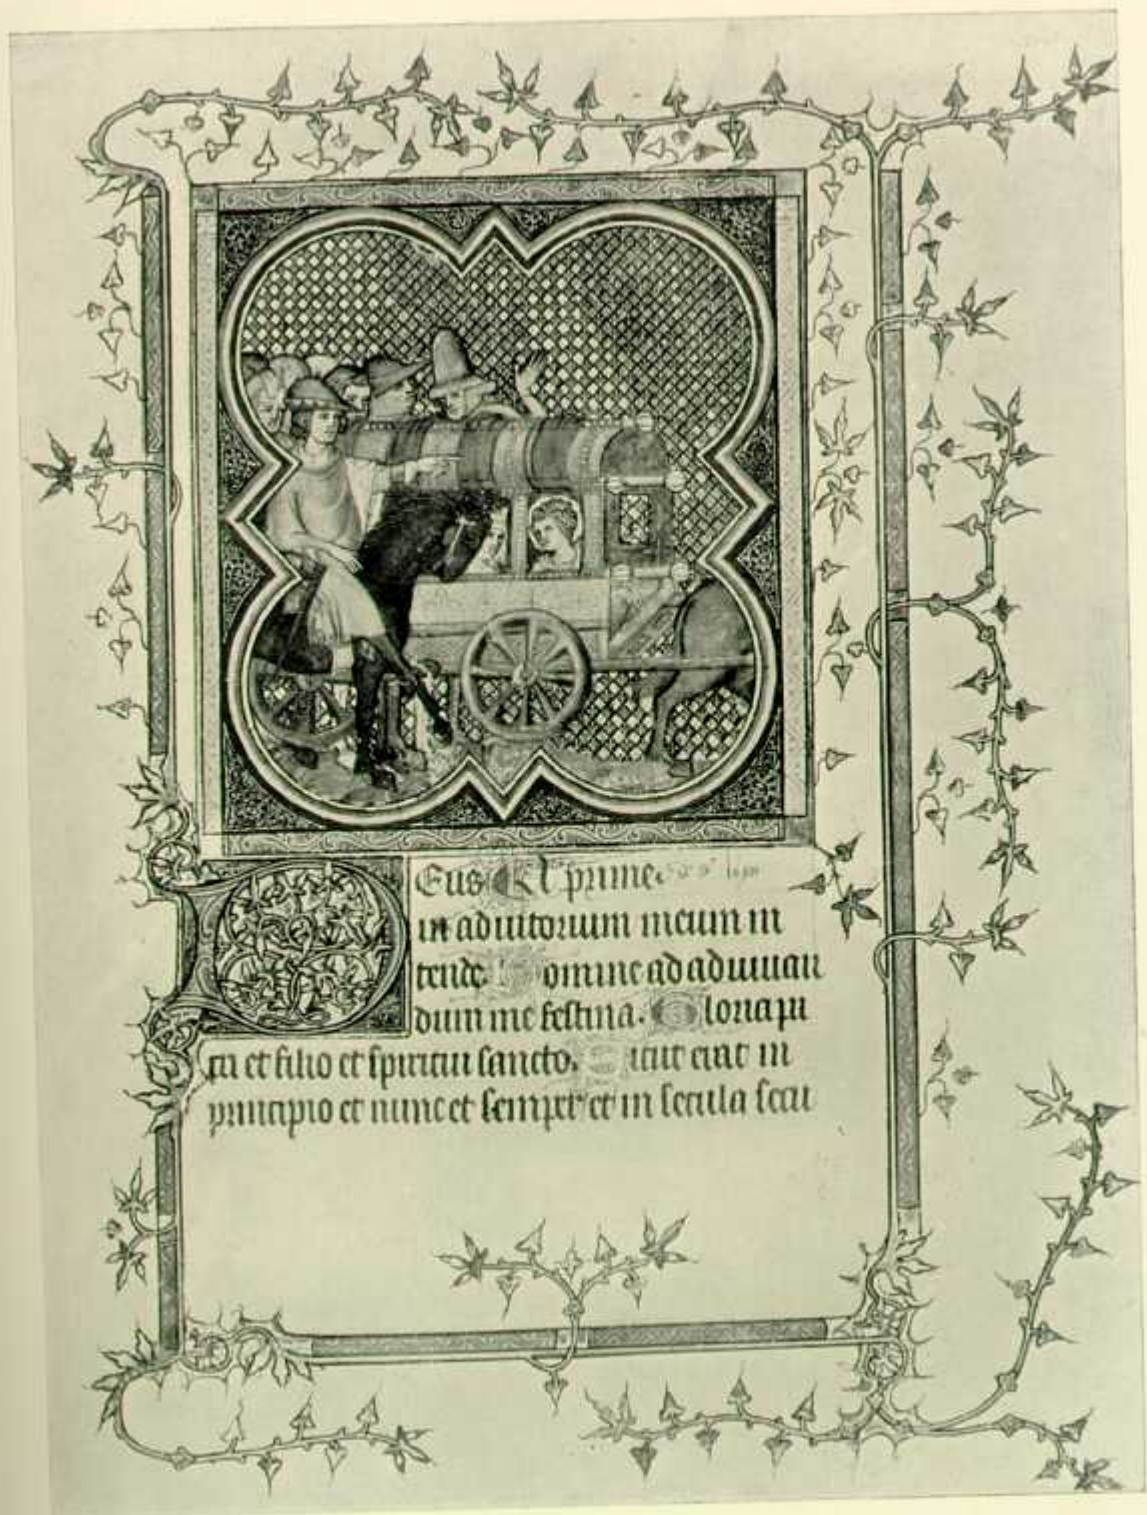 Deus Ad prime.
in adiutorium meum in
tende. Domine ad adiuuan
dum me festina. Gloria pa
tri et filio et spiritui sancto. Sicut erat in
principio et nunc et semper et in secula secu